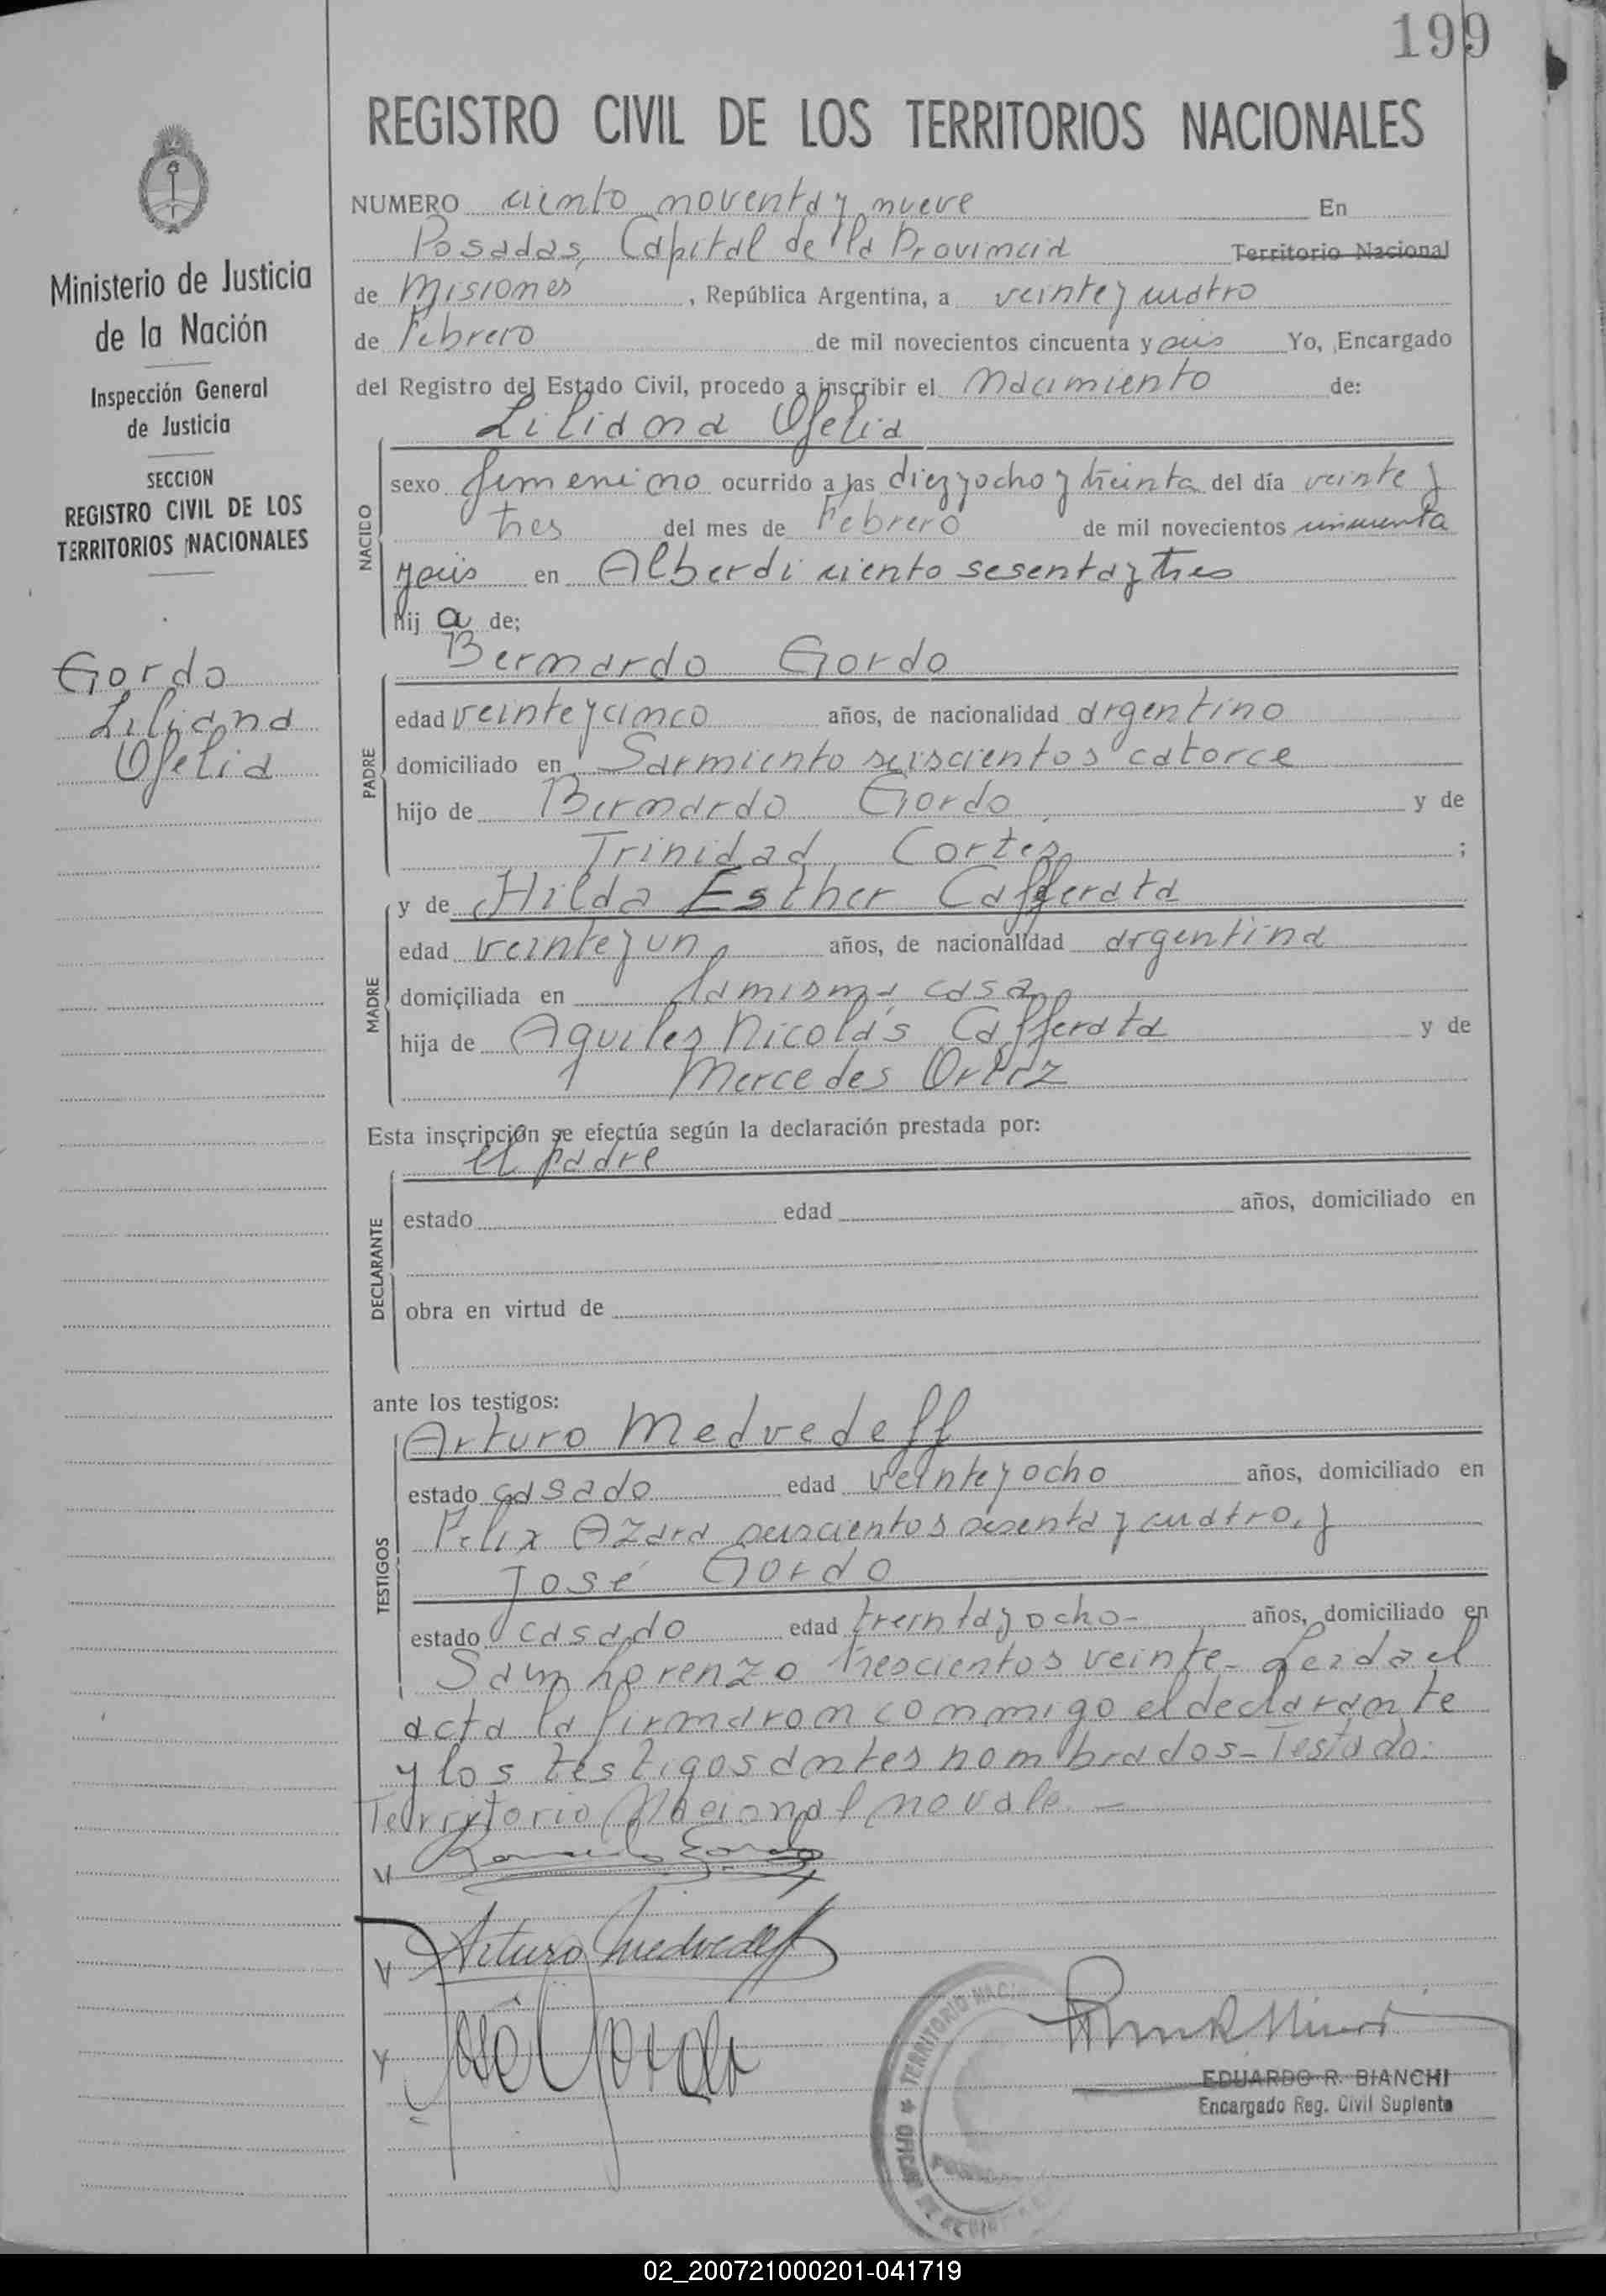 199
REGISTRO CIVIL DE LOS TERRITORIOS NACIONALES
Ministerio de Justicia
de la Nación
Inspección General
de Justicia
SECCION
REGISTRO CIVIL DE LOS
TERRITORIOS NACIONALES
Gordo
Liliana
Ofelia
NUMERO ciento noventa y nueve En
Posadas, Capital de la Provincia Territorio Nacional
de Misiones, República Argentina, a veinte y cuatro
de Febrero de mil novecientos cincuenta y seis Yo, Encargado
del Registro del Estado Civil, procedo a inscribir el Nacimiento de:
Liliana Ofelia
NACIDO
sexo femenino ocurrido a las diez y ocho y treinta del día veinte y
tres del mes de Febrero de mil novecientos cincuenta
y seis en Alberdi ciento sesenta y tres
hij a de;
Bernardo Gordo
PADRE
edad veinte y cinco años, de nacionalidad argentino
domiciliado en Sarmiento seiscientos catorce
hijo de Bernardo Gordo y de
Trinidad Cortez;
y de Hilda Esther Cafferata
MADRE
edad veinte y un años, de nacionalidad argentina
domiciliada en la misma casa
hija de Aquiles Nicolás Cafferata y de
Mercedes Ortiz
Esta inscripción se efectúa según la declaración prestada por:
el padre
DECLARANTE
estado edad años, domiciliado en
obra en virtud de
ante los testigos:
Arturo Medvedeff
TESTIGOS
estado casado edad veinte y ocho años, domiciliado en
Felix Azara seiscientos sesenta y cuatro, y
José Gordo
estado casado edad treinta y ocho- años, domiciliado en
San Lorenzo trescientos veinte- Leida el
acta la firmaron conmigo el declarante
y los testigos antes nombrados- Testado:
Territorio Nacional no vale. -
Bernardo Gordo
Arturo Medvedeff
José Gordo
TERRITORIO NACI
EDUARDO R. BIANCHI
Encargado Reg. Civil Suplente
02_200721000201-041719